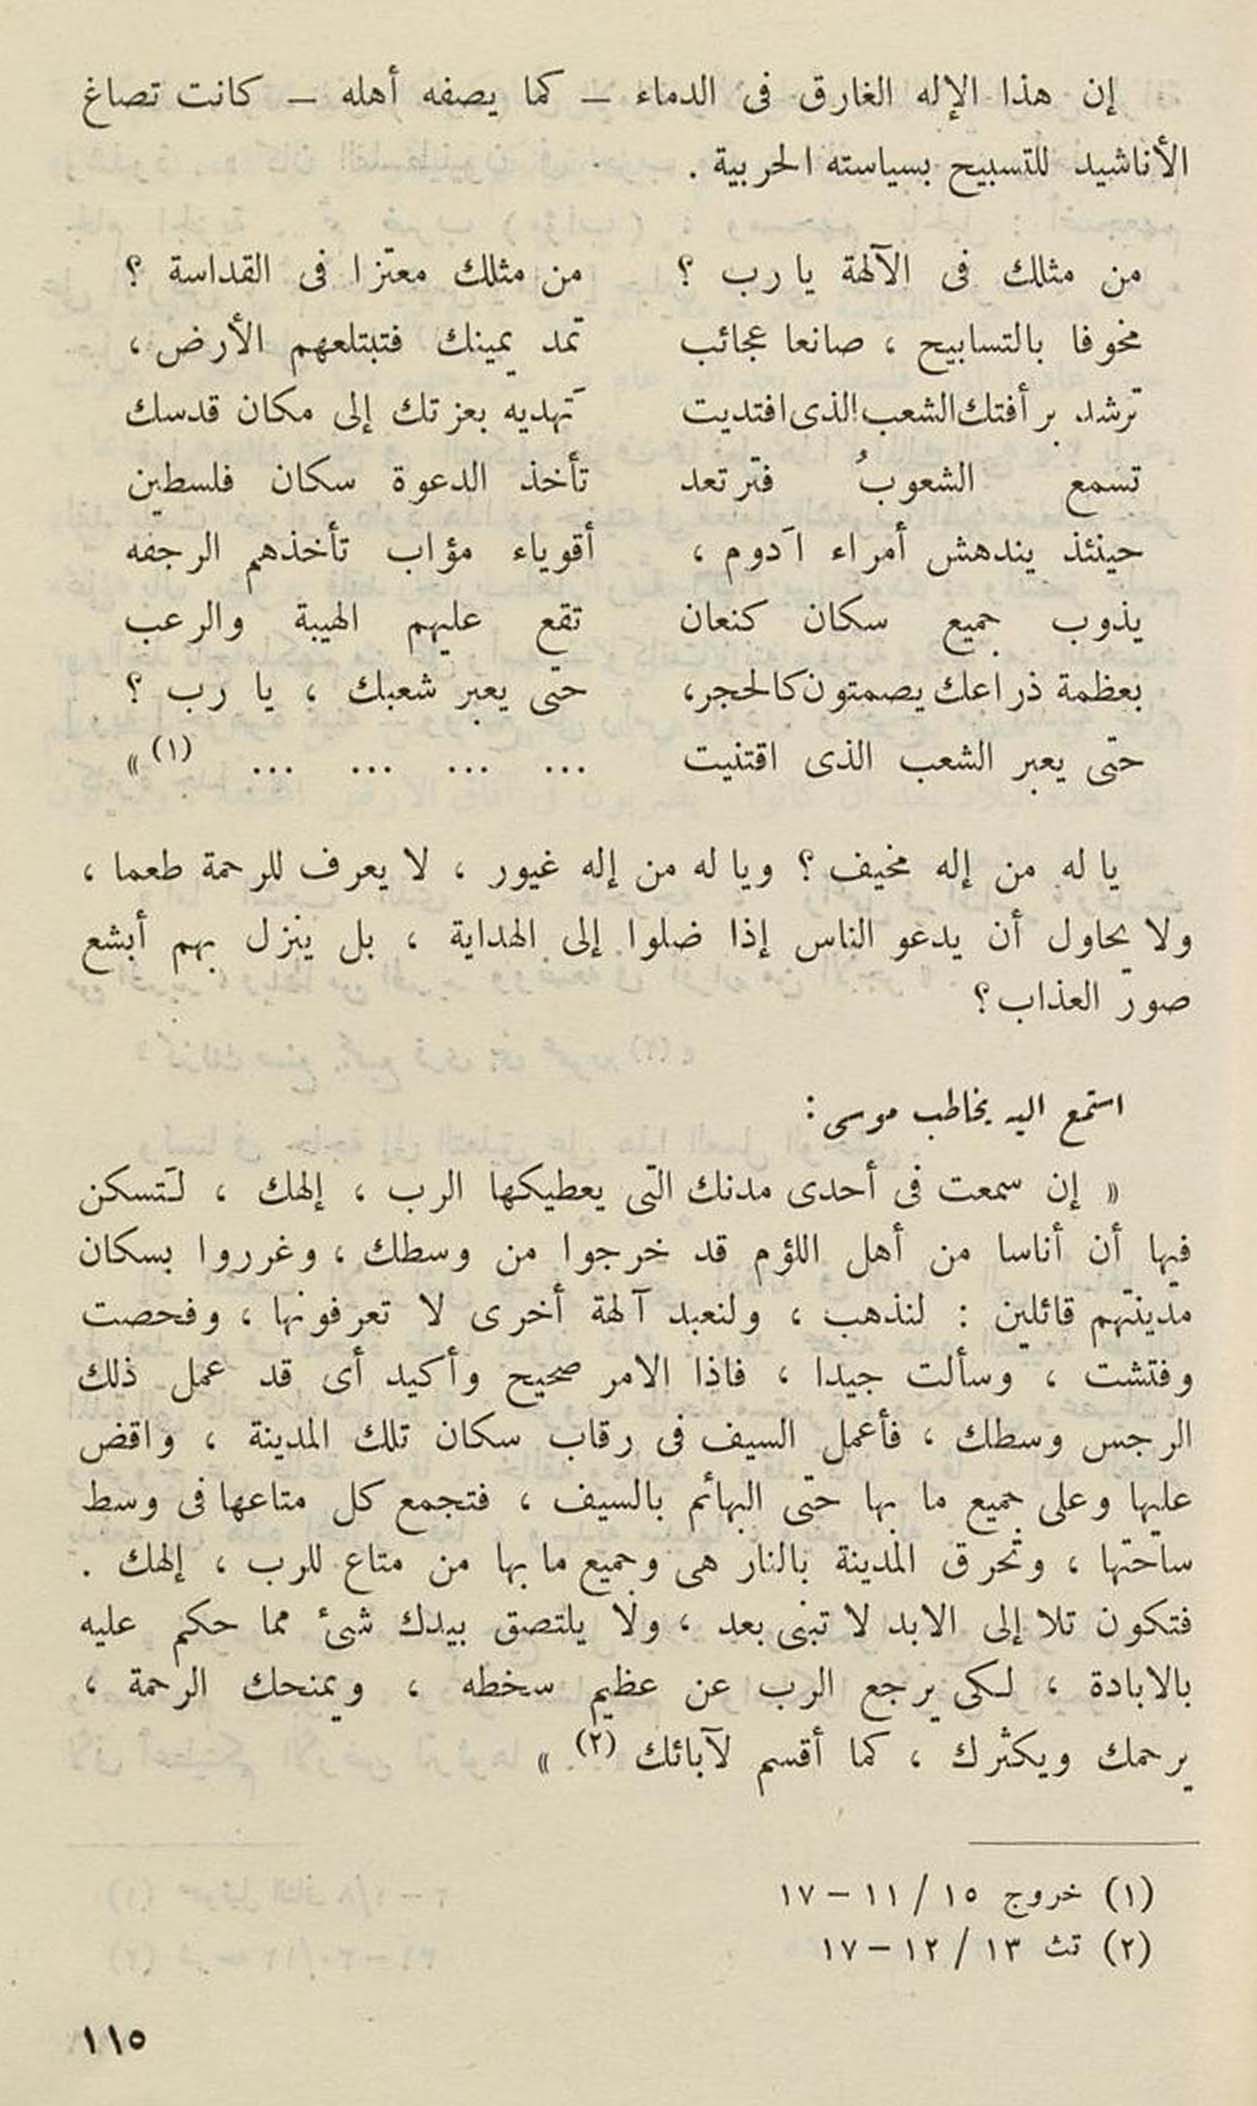 إن هذا الإله الغارق فى الدماء – كما يصفه أهله – كانت تصاغ
الأناشيد للتسبيح بسياسته الحربية .
من مثلك فى الآلهة يا رب ؟ من مثلك معتزا فى القداسة ؟
مخوفا بالتسابيح ، صانعا عجائب تمد يمينك فتبتلعهم الأرض ،
ترشد برأفتك الشعب الذى افتديت تهديه بعزتك إلى مكان قدسك
تسمع الشعوبُ فترتعد تأخذ الدعوة سكان فلسطين
حينئذ يندهش أمراء آدوم ، أقوياء مؤاب تأخذهم الرجفه
يذوب جميع سكان كنعان تقع عليهم الهيبة والرعب
بعظمة ذراعك يصمتون كالحجر، حتى يعبر شعبك ، يا رب ؟
حتى يعبر الشعب الذى اقتنيت ... ... ... ... (١) »
يا له من إله مخيف ؟ ويا له من إله غيور ، لا يعرف للرحمة طعما ،
ولا يحاول أن يدعو الناس إذا ضلوا إلى الهداية ، بل ينزل بهم أبشع
صور العذاب ؟
استمع اليه يخاطب موسى :
« إن سمعت فى أحدى مدنك التى يعطيكها الرب ، إلهك ، لتسكن
فيها أن أناسا من أهل اللؤم قد خرجوا من وسطك ، وغرروا بسكان
مدينتهم قائلين : لنذهب ، ولنعبد آلهة أخرى لا تعرفونها ، وفحصت
وفتشت ، وسألت جيدا ، فاذا الامر صحيح وأكيد أى قد عمل ذلك
الرجس وسطك ، فأعمل السيف فى رقاب سكان تلك المدينة ، واقض
عليها وعلى جميع ما بها حتى البهائم بالسيف ، فتجمع كل متاعها فى وسط
ساحتها ، وتحرق المدينة بالنار هى وجميع ما بها من متاع للرب ، إلهك .
فتكون تلا إلى الابد لا تبنى بعد ، ولا يلتصق بيدك شىء مما حكم عليه
بالابادة ، لكى يرجع الرب عن عظيم سخطه ، ويمنحك الرحمة ،
يرحمك ويكثرك ، كما أقسم لآبائك (٢) »
(١) خروج ١٥ / ١١ – ١٧
(٢) تث ١٣ / ١٢ – ١٧
١١٥